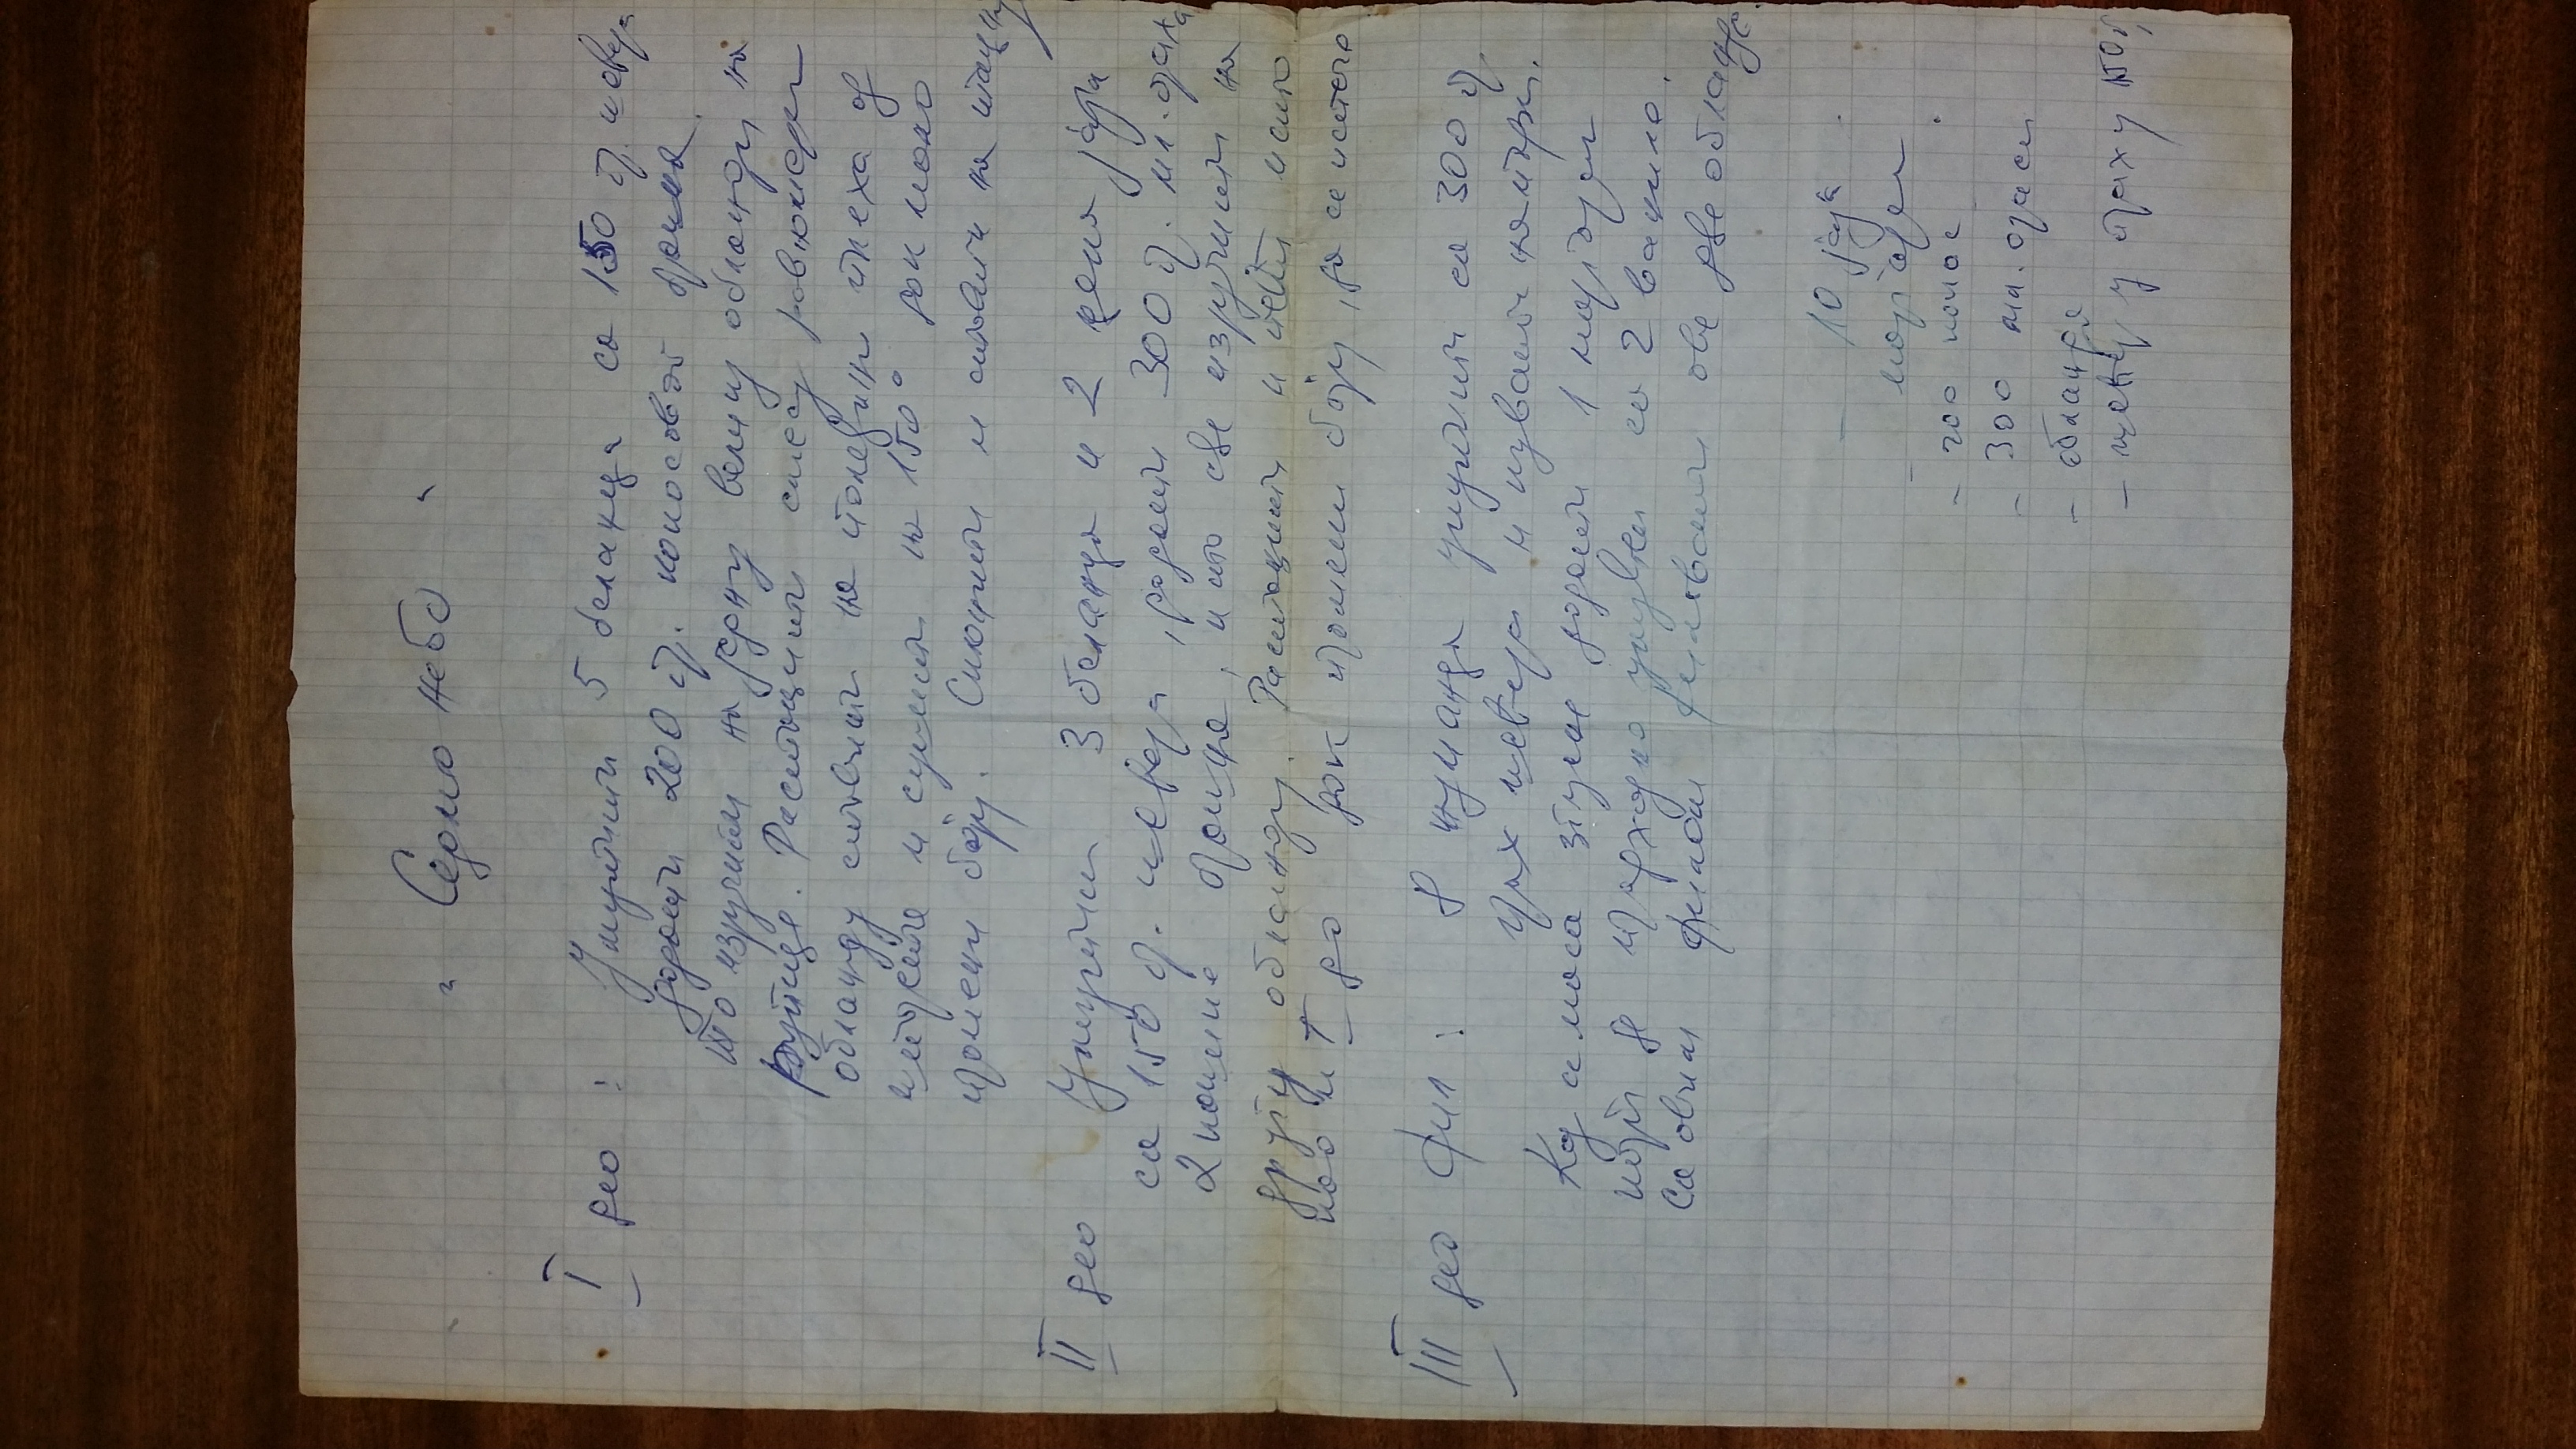 „ Седмо небо "
I део : Умутити 5 беланца са 150 гр. шећера
додати 200 гр. кокосовог брашна.
то изручити на једну велику обланду на
рупице. Растоцити смесу равномерно
обланду ставити на полеђини плеха од
и сушити на 150° док мало
промени боју. Склонити и ставити на тацну
II део Умутити 3 беланца и 2 цела јаја
са 150 гр. шећера, додати 300 гр. мл. ораха
2 кашике брашна, и то све изручити на
другу обланду. Растоцити и пећи исто
као и I до док промени боју, да се испече
III део фил : 8 жуманца умутити са 300 гр
прах шећера и кувати на пари.
Кад а маса згусне додати 1 маргарин
који је предходно умућен са 2 ваниле.
Са овим филом филовати ове две обланде.
- 10 јаја
- маргарин
- 200 кокос
- 300 мл. ораси
- обланде
- шећер у праху 150 гр